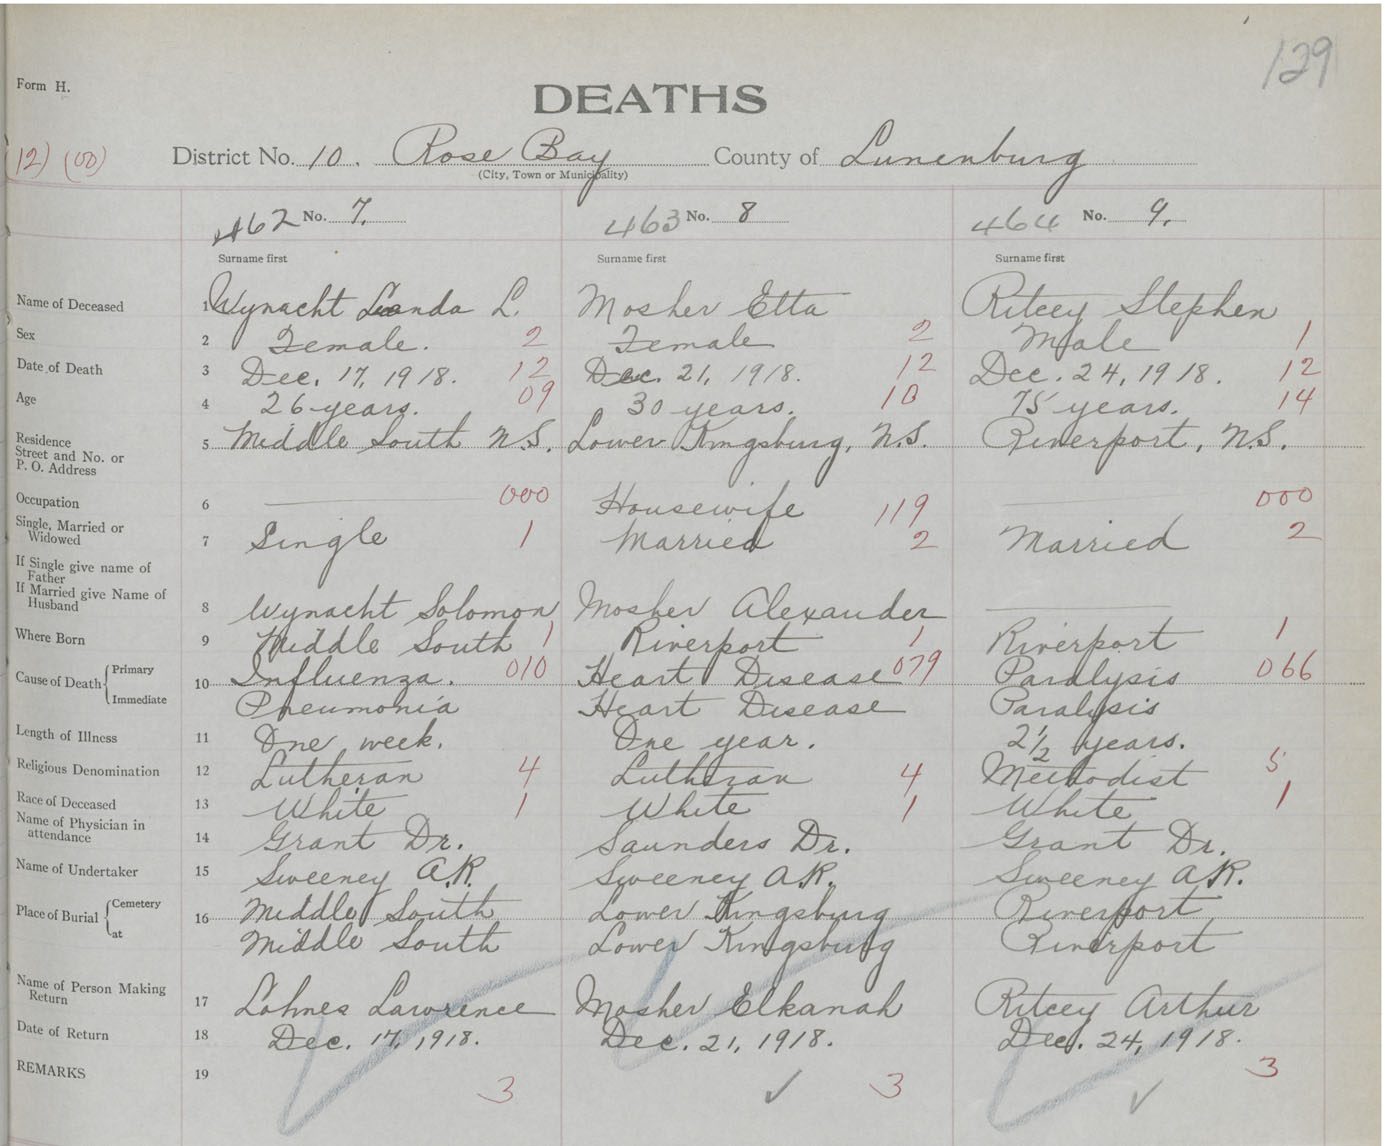 129
Form H.
DEATHS
(12) (00) District No. 10. Rose Bay County of Lunenburg
(City, Town or Municipality)
462 No. 7. 463 No. 8 464 No. 9.
Surname first Surname first Surname first
Name of Deceased 1 Wynacht L. Mosher Etta Ritcey Stephen
Sex 2 Female. 2 Female 2 Male 1
Date of Death 3 Dec. 17, 1918. 12 Dec. 21, 1918. 12 Dec. 24, 1918. 12
Age 4 26 years. 09 30 years. 10 75 years. 14
Residence
Street and No. or
P. O. Address 5 Middle South N.S. Lower Kingsburg, N.S. Riverport, N.S.
Occupation 6 000 Housewife 119 000
Single, Married or
Widowed 7 Single 1 Married 2 Married 2
If Single give name of
Father
If Married give Name of
Husband 8 Wynacht Solomon Mosher Alexander
Where Born 9 Middle South 1 Riverport 1 Riverport 1
Cause of Death Primary 10 Influenza. 010 Heart Disease 079 Paralysis 066
Immediate Pneumonia Heart Disease Paralysis
Length of Illness 11 One week. One year. 2½ years.
Religious Denomination 12 Lutheran 4 Lutheran 4 Methodist 5
Race of Deceased 13 White 1 White 1 White 1
Name of Physician in
attendance 14 Grant Dr. Saunders Dr. Grant Dr.
Name of Undertaker 15 Sweeney A.R. Sweeney A.R. Sweeney A.R.
Place of Burial Cemetery 16 Middle South Lower Kingsburg Riverport
at Middle South Lower Kingsburg Riverport
Name of Person Making
Return 17 Lohnes Lawrence Mosher Elkanah Ritcey Arthur
Date of Return 18 Dec. 17, 1918. Dec. 21, 1918. Dec. 24, 1918.
REMARKS 19 3 ✓ 3 ✓ 3